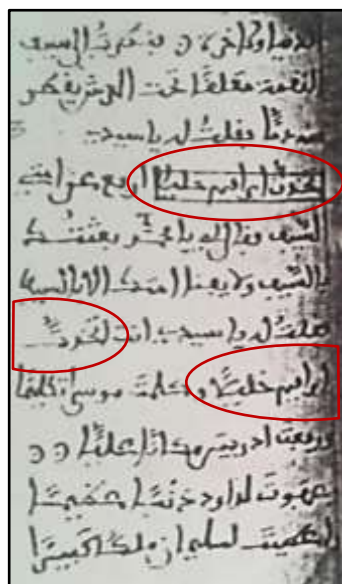 الدنيا والاخرة فنظرت الى سيف
النقمة معلقا تحت العرش يفطر
دما فقلت له يا سيدي
اتخذت ابراهيم خليلا ارفع عن امتي
السيف وقال لي يا محمد بعثتك
بالسيف ولا يفنا امتك الا بالسيف
فقلت له يا سيدي انت اتخذت
ابراهيم خليلا وكلمت موسى تكليما
ورفعت ادريس مكانا عليا
لداود ذنبا عظيما
واعطيت لسليمان ملكا كبيرا